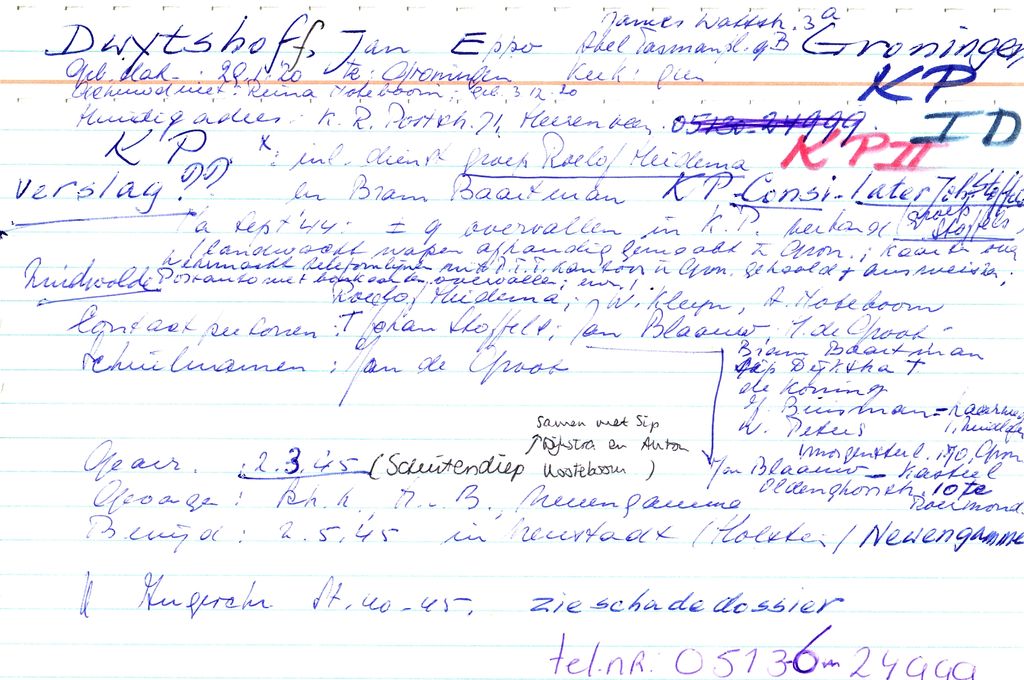 James Wattstr. 3a
Dwytshoff, Jan Eppo Abel Tasmanpl. 9B Groningen
Geb. dat. : 29.1.20 te: Groningen Kerk: geen
KP
Gehuwd met: Reina Noteboom; geb. 3 12 20
Huidig adres: K. R. Poststr. 71, Heerenveen. 05130-24999.
ID
KP x: inl. dienst groep Roelof Heidema KP II
verslag ?? en Bram Baartman KP-Consi-later Joh. Stoffels
Na sept '44: ± 9 overvallen in K.P. verband (groep Stoffels)
/ Landwacht wapen afhandig gemaakt in Gron.;
Wehrmacht telefoonlijnen met P.T.T. kantoor in Gron. gehoald + ausweise;
Zuidwolde Postauto met bonkaarten overvallen; enz.!
Roelof Heidema; W. Kleyn, A. Noteboom
Contactpersonen: † Johan Stoffels; Jan Blaauw, J. de Groot
Schuilnamen : Jan de Groot
Bram Baartman
Sip Dijkstra †
de Koning
Buisman =
W. Peters
samen met Sip
Dijkstra en Anton
Noteboom
Gearr. : 2.3.45 (Schuitendiep )
Jan Blaauw - Kasteel
10 te
Roermond
Gevange: Sch.h., H. v. B., Neuengamme
Bevrijd: 2.5.45 in Neustadt / Holstein / Neuengamme
Ingeschr. St. 40-45. zie schadedossier
tel.nr: 05136-24999